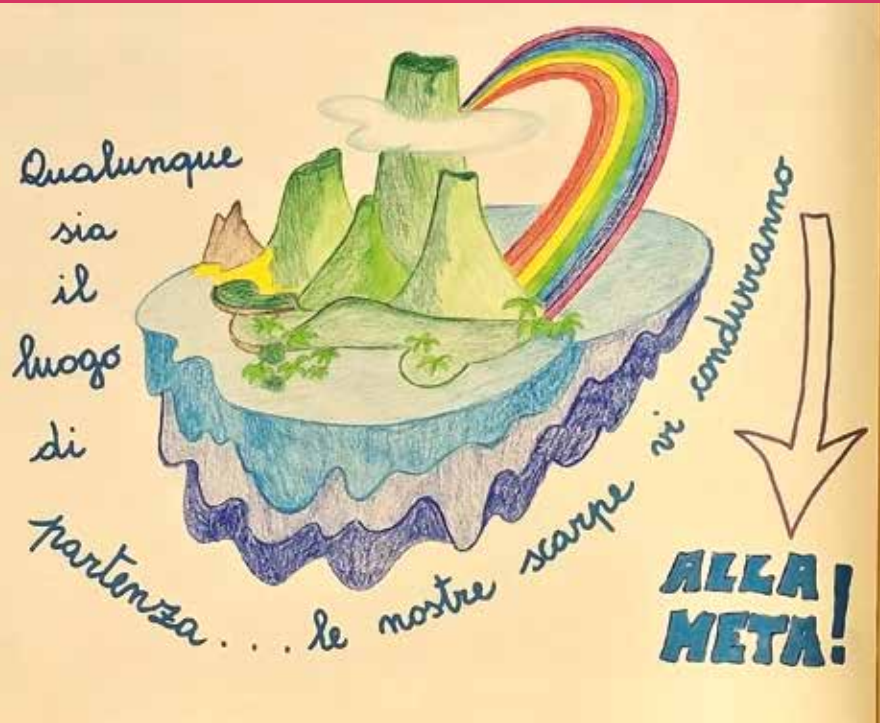 Qualunque
sia
il
luogo
di
partenza... le nostre scarpe vi condurranno
ALLA
META!